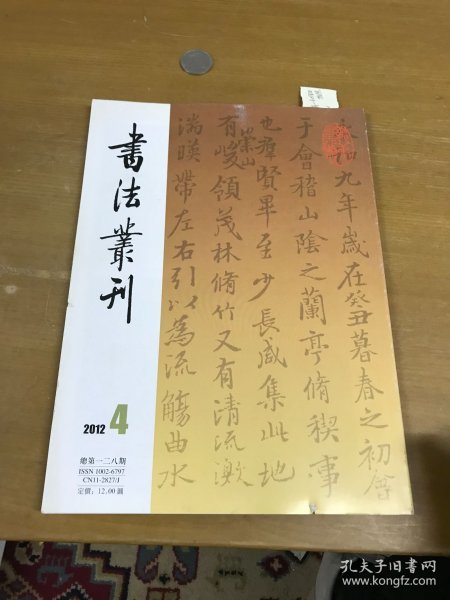 書法叢刊
2012 4
總第一二八期
ISSN 1002-6797
CN11-2827/J
定價：12.00圓
永和九年歲在癸丑暮春之初會
于會稽山陰之蘭亭脩稧事
也羣賢畢至少長咸集此地
有崇山峻領茂林脩竹又有清流激
湍暎帶左右引以為流觴曲水
孔夫子旧书网
www.kongfz.com